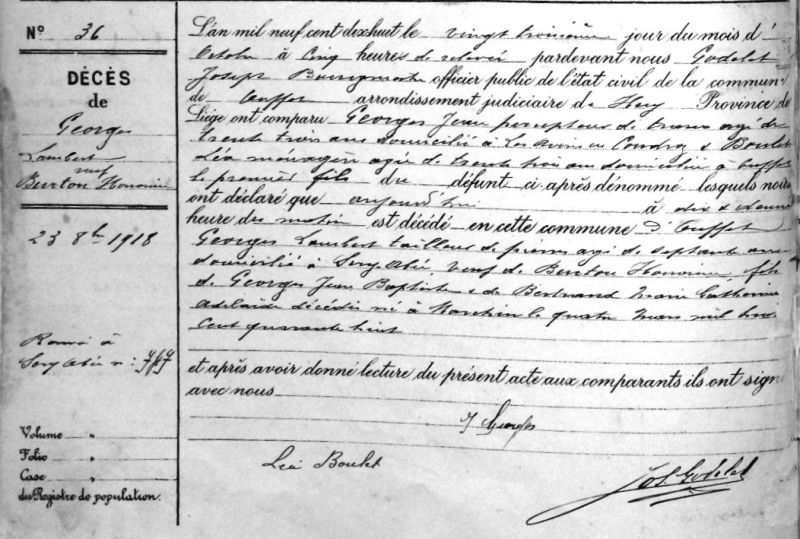 N° 36
DÉCÈS
de
Georges
Lambert
veuf
Burton Honorine
23 8bre 1918
Renvoi à
Volume "
Folio "
Case "
du Registre de population.
L'an mil neuf cent dixhuit le vingt troisième jour du mois d'
Octobre à cinq heures de relevée pardevant nous Godelet
Joseph Bourgmestre officier public de l'état civil de la commun-
de Ouffet arrondissement judiciaire de Huy Province de
Liège ont comparu Georges Jean percepteur de trams agé de
trente trois ans domicilié à Les Avins en Condroz & Boulet
Léa ménagère agée de trente trois ans domiciliée à Ouffet
le premier fils du défunt ci-après dénommé lesquels nous
ont déclaré que aujourd'hui à dix & demie
heure du matin est décédé en cette commune d'Ouffet
Georges Lambert tailleur de pierres agé de septante ans
domicilié à veuf de Burton Honorine fils
de Georges Jean Baptiste & de Bertrand Marie Catherine
Adelaïde décédés né à Marchin le quatre Mars mil huit
cent quarante huit
et après avoir donné lecture du présent acte aux comparants ils ont signé
avec nous
J Georges
Léa Boulet
Jos. Godelet